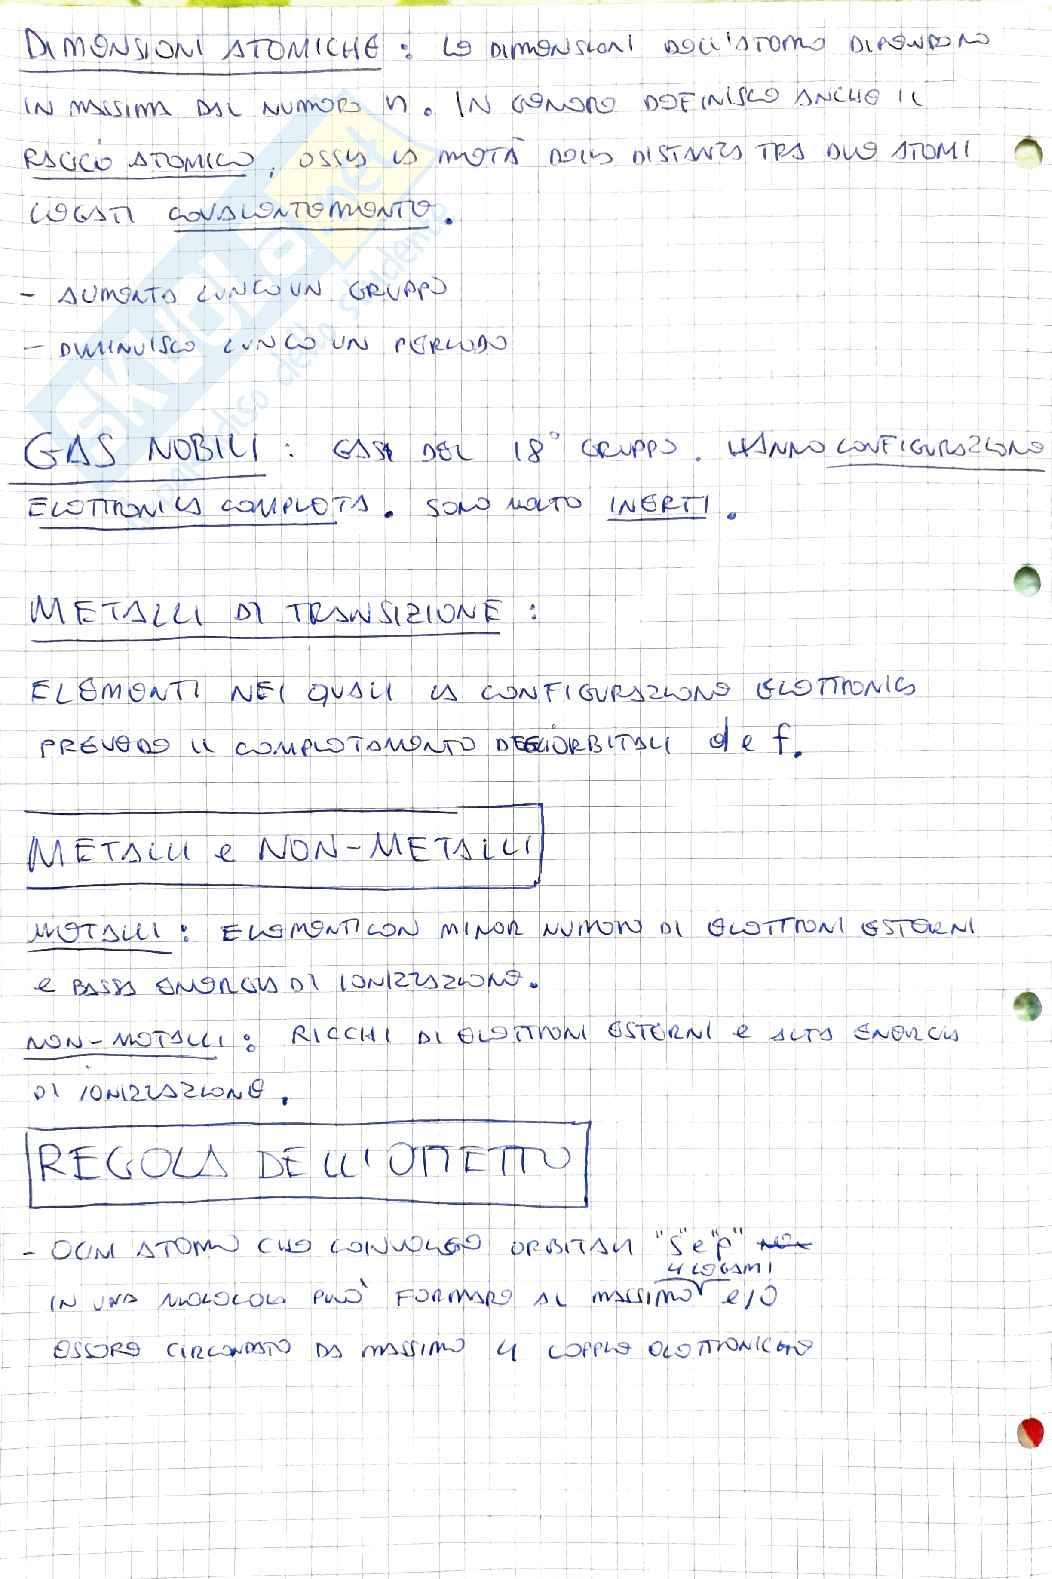 DIMENSIONI ATOMICHE : LE DIMENSIONI DELL'ATOMO DIPENDONO
IN MASSIMA DAL NUMERO n. IN GENERE DEFINISCO ANCHE IL
RAGGIO ATOMICO, OSSIA LA METÀ DELLA DISTANZA TRA DUE ATOMI
LEGATI COVALENTEMENTE.
- AUMENTA LUNGO UN GRUPPO
- DIMINUISCE LUNGO UN PERIODO
GAS NOBILI : GAS DEL 18° GRUPPO. HANNO CONFIGURAZIONE
ELETTRONICA COMPLETA. SONO MOLTO INERTI.
METALLI DI TRANSIZIONE :
ELEMENTI NEI QUALI LA CONFIGURAZIONE ELETTRONICA
PREVEDE IL COMPLETAMENTO DEGLI ORBITALI d e f.
METALLI e NON-METALLI
METALLI : ELEMENTI CON MINOR NUMERO DI ELETTRONI ESTERNI
e BASSA ENERGIA DI IONIZZAZIONE.
NON-METALLI : RICCHI DI ELETTRONI ESTERNI e ALTA ENERGIA
DI IONIZZAZIONE.
REGOLA DELL'OTTETTO
- OGNI ATOMO CHE COINVOLGE ORBITALI "s" e "p"
4 LEGAMI
IN UNA MOLECOLA PUÒ FORMARE AL MASSIMO e/o
ESSERE CIRCONDATO DA MASSIMO 4 COPPIE ELETTRONICHE
SKUOLA.net
paradiso dello studente